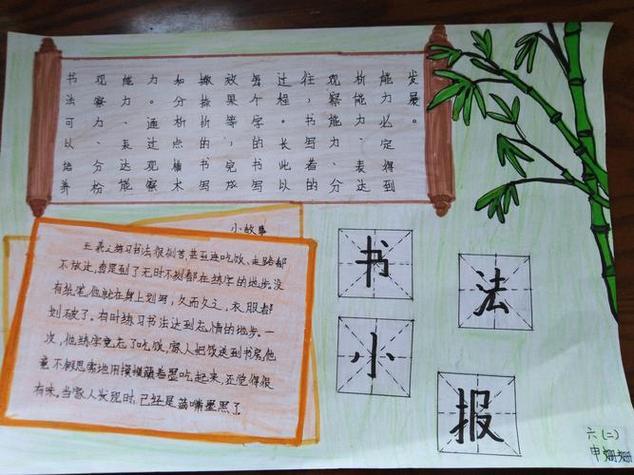 书法可以培养
观察力、分析
能力、表达能
力。通过观察
如分析点横
撇捺折的书写
效果等；完成
整个字的书写
过程。长此以
往，书写者的
观察能力、分
析能力、表达
能力必定得到
发展。
小故事
王羲之练习书法很刻苦，甚至连吃饭、走路都
不放过，真是到了无时不刻都在练字的地步。没
有纸笔，他就在身上划写，久而久之，衣服都
划破了。有时练习书法达到忘情的地步。一
次，他练字竟忘了吃饭，家人把饭送到书房，他
竟不假思索地用馍馍蘸着墨吃起来，还觉得很
有味。当家人发现时，已经是满嘴墨黑了
书法
小报
六(二)
申姗姗